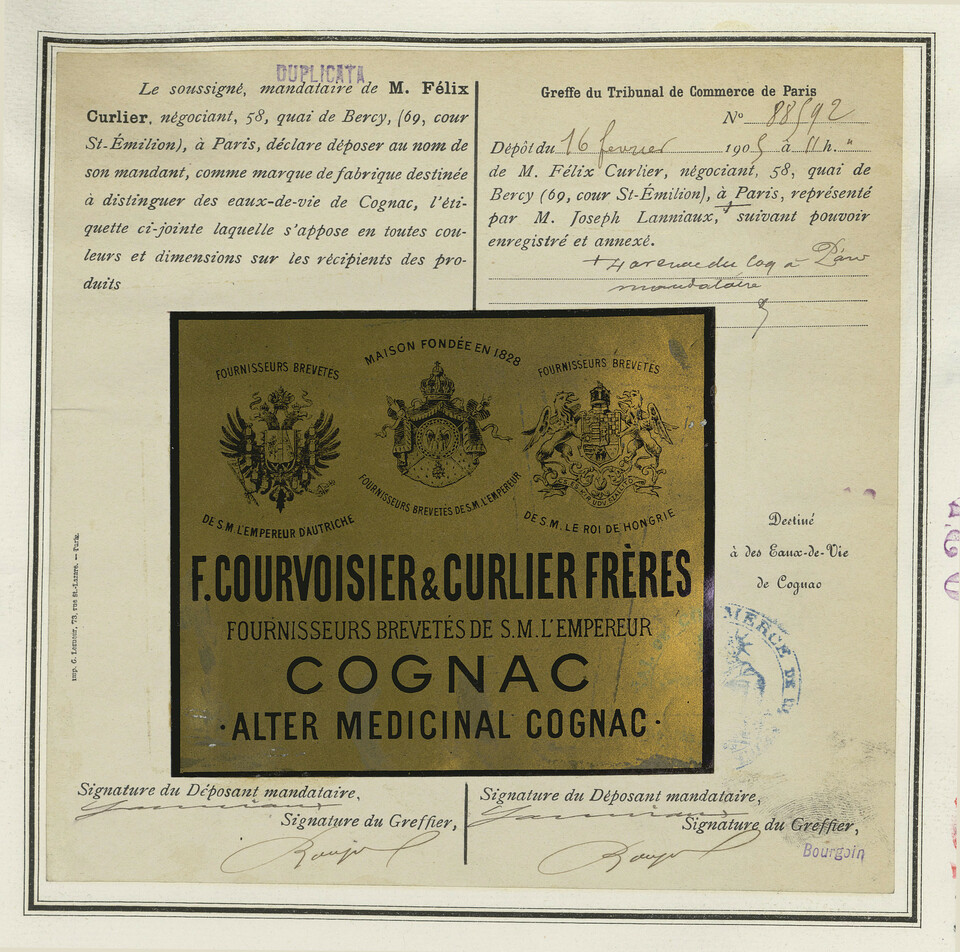 DUPLICATA
Le soussigné, mandataire de M. Félix
Curlier, négociant, 58, quai de Bercy, (69, cour
St-Émilion), à Paris, déclare déposer au nom de
son mandant, comme marque de fabrique destinée
à distinguer des eaux-de-vie de Cognac, l'éti-
quette ci-jointe laquelle s'appose en toutes cou-
leurs et dimensions sur les récipients des pro-
duits
Greffe du Tribunal de Commerce de Paris
No 88592
Dépôt du 16 fevrier 1905 à 11 h. "
de M. Félix Curlier, négociant, 58, quai de
Bercy (69, cour St-Émilion), à Paris, représenté
par M. Joseph Lanniaux, + suivant pouvoir
enregistré et annexé.
+ 4 avenue du Coq à Paris
mandataire
MAISON FONDÉE EN 1828
FOURNISSEURS BREVETÉS
DE S.M. L'EMPEREUR D'AUTRICHE
FOURNISSEURS BREVETÉS DE S.M. L'EMPEREUR
FOURNISSEURS BREVETÉS
DE S.M. LE ROI DE HONGRIE
F. COURVOISIER & CURLIER FRÈRES
FOURNISSEURS BREVETÉS DE S.M. L'EMPEREUR
COGNAC
·ALTER MEDICINAL COGNAC·
Destiné
à des Eaux-de-Vie
de Cognac
Imp. G. Lerueur, 73, rue St-Lazare. — Paris.
MERCE DE
Signature du Déposant mandataire,
Lanniaux
Signature du Greffier,
Signature du Déposant mandataire,
Lanniaux
Signature du Greffier,
Bourgoin